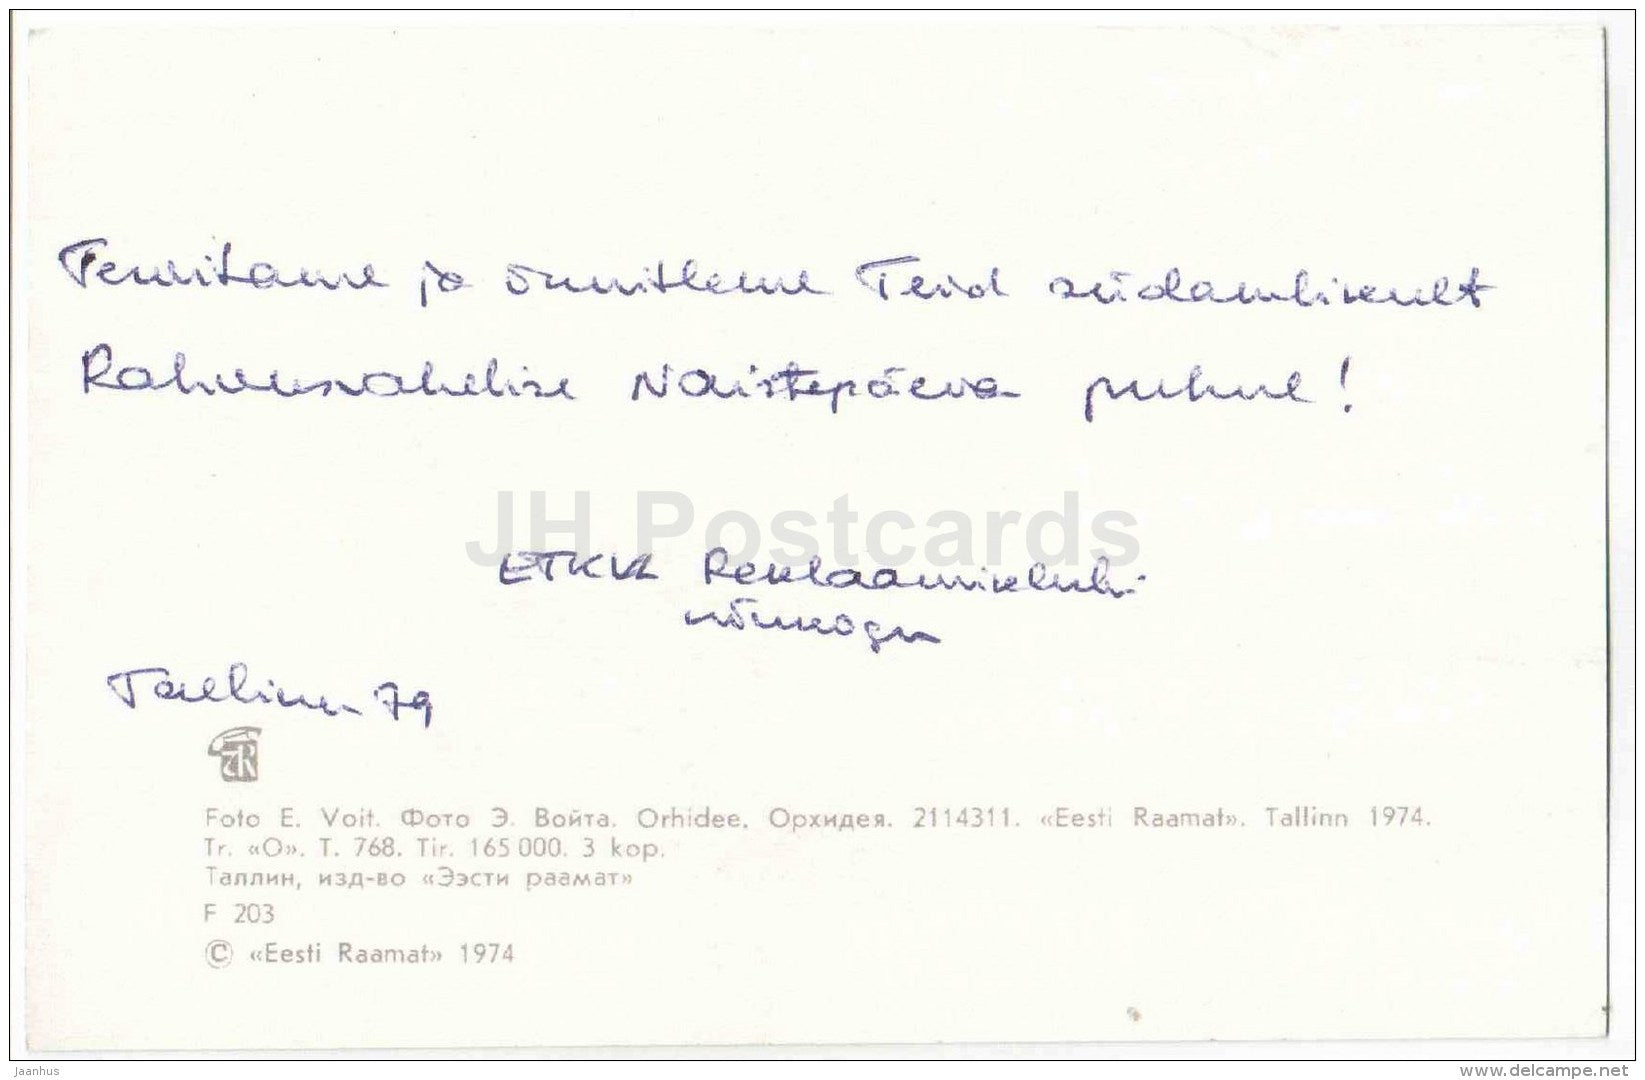 Tervitame ja õnnitleme Teid südamlikult
Rahvusvahelise Naistepäeva puhul!
JH Postcards
ETKVL Reklaamiklubi
nõukogu
Tallinn 79
TR
Foto E. Voit. Фото Э. Войта. Orhidee. Орхидея. 2114311. «Eesti Raamat». Tallinn 1974.
Tr. «O». T. 768. Tir. 165 000. 3 kop.
Таллин, изд-во «Ээсти раамат»
F 203
© «Eesti Raamat» 1974
Jaanhus
www.delcampe.net